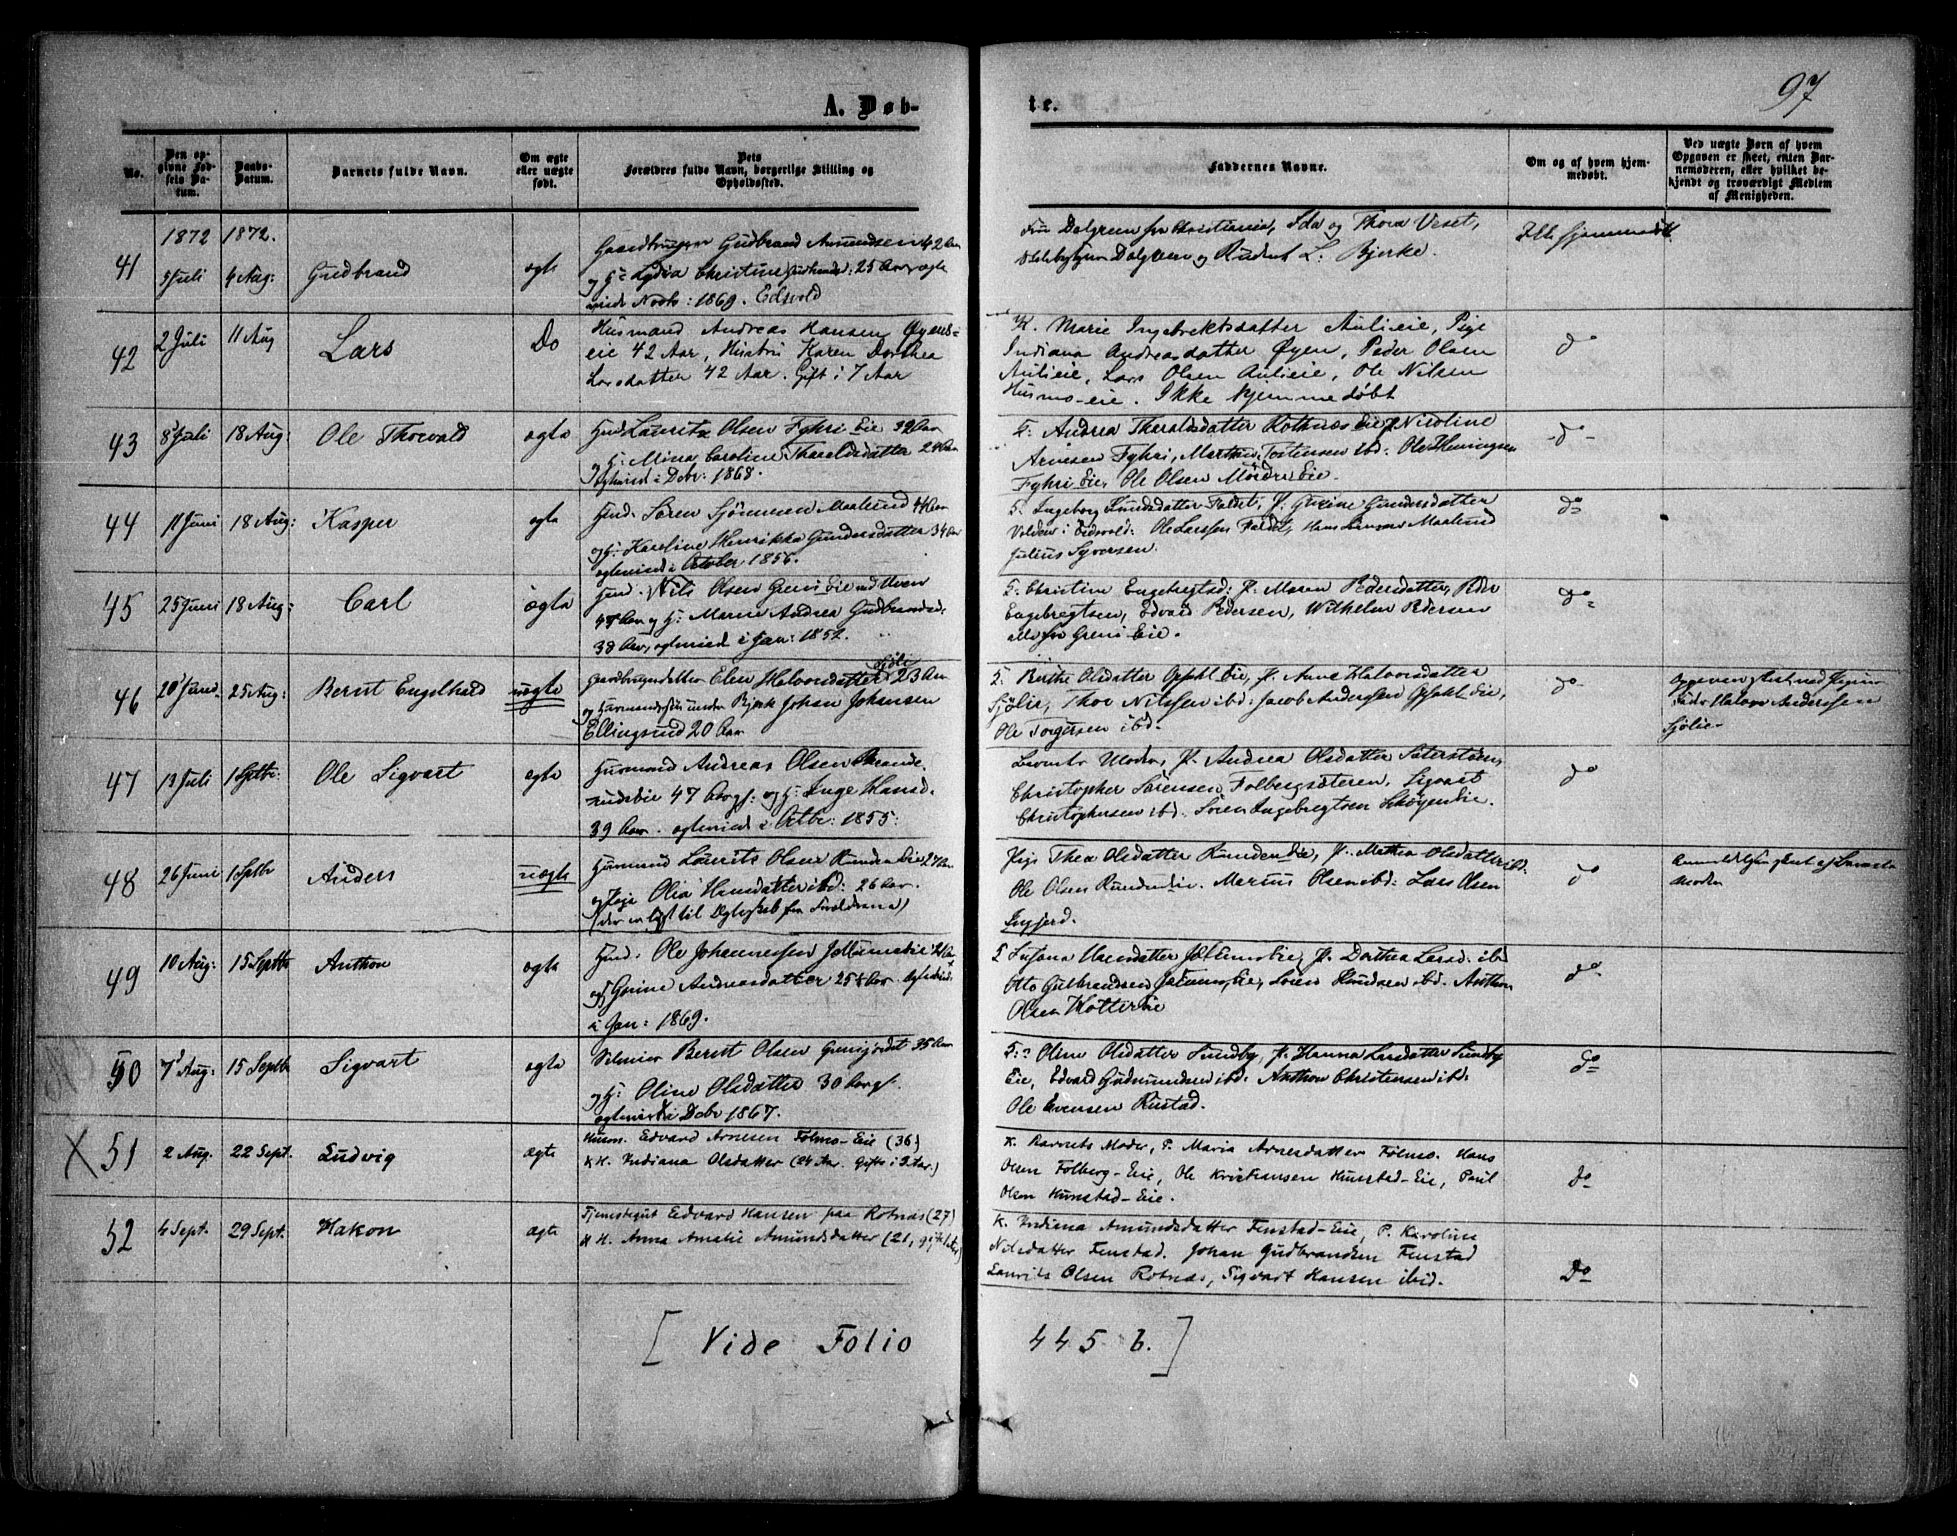 A. Døb-
te.
97
No.
Den opgivne Fødsels Datum.
Daabs-Datum.
Barnets fulde Navn.
Om ægte eller uægte født.
Dets Forældres fulde Navn, borgerlige Stilling og Opholdssted.
Faddernes Navne.
Om og af hvem hjemmedøbt.
Ved uægte Børn af hvem Opgaven er skeet, enten Barnemoderen, eller hvilket bekjendt og troværdigt Medlem af Menigheden.
1872 1872.
41 5 Juli 4 Aug: Gudbrand ægte
Gaardbruger Gudbrand Amundsen 42 Aar
og H: Lydia Christine 25 Aar
1869. Eidsvold
Fru Dalgreen fra Christiania, Ida og Thora Veset,
Dalgreen og L. Bjerke.
Ikke hjemmedøbt
42 2 Juli 11 Aug Lars Do
Husmand Andreas Hansen Øyens-
eie 42 Aar, Hustru Karen Dorthea
Larsdatter 42 Aar. Gift i 7 Aar
K. Marie Ingebrektsdatter Aulieie, Pige
Indiana Andreasdatter Øyen, Peder Olsen
Aulieie, Lars Olsen Aulieie, Ole Nilsen
Husmo-eie. Ikke hjemmedøbt
do
43 8 Juli 18 Aug: Ole Thorvald ægte
Hmd Lauritz Olsen Fyhri Eie 32 Aar
og H: Mina Caroline Tharaldsdatter
ægteviet i Debr: 1868.
K: Andrea Tharaldsdatter Rothnes Eie P. Nicoline
Arnesen Fyhri, Martin Tostensen ibd: Ole Henningsen
Fyhri Eie, Ole Olsen Mørdre Eie.
do
44 11 Juni 18 Aug: Kasper ægte
Hmd. Søren Maalund 44 Aar
og H: Karoline Henrikke Gundersdatter 34 Aar
ægteviet i October 1856.
K. Ingeborg Knudsdatter Faldet, P. Gundersdatter
Volden i Eidsvold: Ole Larssen Faldet, Hans Maalund
Julius Syversen.
do
45 25 Juni 18 Aug: Carl ægte
Hmd. Nils Olsen Greni Eie
og H: Maren Andrea Gudbrandsd:
38 Aar, ægteviet i Jan: 1852.
K. Christine Engebregtsd: P. Maren Pedersdatter, Peder
Engebregtsen, Edvard Pedersen, Wilhelm Pedersen
alle fra Greni Eie.
do
46 20 Juni 25 Aug: Bernt Engelhard uægte
Gaardbrugerdatter Elen Halvorsdatter Sjøli 23 Aar
og under Bjerke Johan Johansen
Ellingsrud 20 Aar
K. Berthe Olsdatter Eie, P. Anne Halvorsdatter
Sjølie, Thor Nilssen ibd: Jacob Anderssen Eie,
Ole Torgersen ibd.
do
Opgaven skeet ved
Halvor Anderssen
Sjølie
47 13 Juli 1 Septbr: Ole Sigvart ægte
Husmand Andreas Olsen Brande-
rudseie 47 Aar og H: Inge Hansd.
39 Aar. ægteviet i Octbr: 1855:
Barnets Moder, P. Andrea Olsdatter
Christopher Sørensen Folbergsæteren, Sigvart
Christophersen ibd: Søren Ingebregtsen Skøyen Eie.
do
48 26 Juni 1 Septbr Anders uægte
Husmand Laurits Olsen Runden Eie 27 Aar
og Pige Olia Hansdatter ibd: 26 Aar.
(der er lyst til Ægteskab for Forældrene)
Pige Thea Olsdatter Runden Eie, P. Mathea Olsdatter ibd:
Ole Olsen Runden Eie. Marius Olsen ibd: Lars Olsen
do
Anmeldelsen skeet af Barnets
Moder
49 10 Aug: 15 Septbr Anthon ægte
Hmd. Ole Johannessen
og Gorine Andreasdatter 25 Aar. Ægteviet
i Jan: 1869.
K Susana P. Dorthea Larsd. ibd
Otto Gulbrandsen Søren Knudsen ibd. Anthon
Olsen Eie
do
50 7 Aug: 15 Septbr Sigvart ægte
Bernt Olsen 35 Aar
og H: Oline Olsdatter 30 Aar
ægteviet i Debr 1867.
K: Oline Olsdatter Sundby, P. Hanna Larsdatter Sundby
Eie, Edvard Gudmundsen ibd: Anthon Christensen ibd.
Ole Evensen Rustad.
do
X 51 2 Aug. 22 Sept. Ludvig ægte
Husm. Edvard Arnesen Følmo-Eie (36)
& H. Indiana Olsdatter (24 Aar. Gifte i 3 Aar.)
K. Barnets Moder, P. Maria Arnesdatter Følmo. Hans
Olsen Folberg-Eie, Ole Kristiansen Hunstad-Eie, Paul
Olsen Hunstad-Eie.
do
52 4 Sept. 29 Sept. Hakon ægte
Tjenestegut Edvard Hansen paa Rotnæs (27)
& H. Anna Amalie Amundsdatter (21,
K. Indiana Amundsdatter Fenstad-Eie, P. Karoline
Nilsdatter Fenstad. Johan Gudbrandsen Fenstad
Laurits Olsen Rotnæs, Sigvart Hansen ibid.
Do
[ Vide Folio 445 b. ]